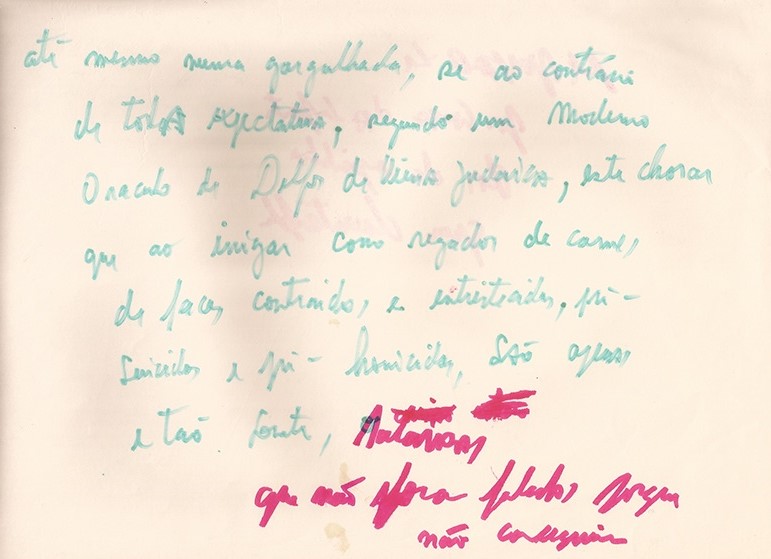 até mesmo numa gargalhada, se ao contrário
de todas expectativas, segundo um Moderno
Oraculo de Delfos de Viena Judaica, este chorar
que ao irrigar como regador de carnes
de faces contraidas e entristecidas, pré-
suicidas e pré-homicidas, são apenas
e tão somente,
que não
não conseguiu